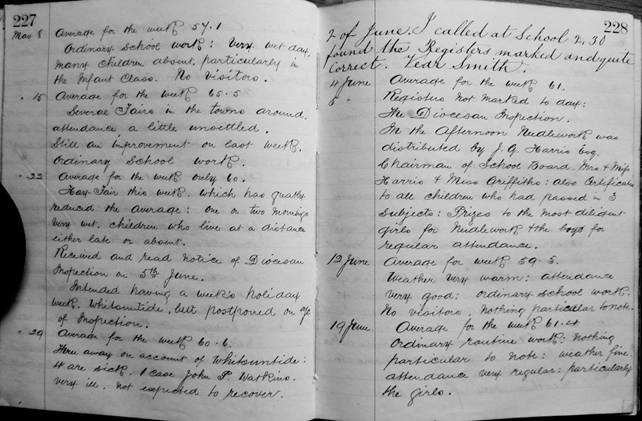 227
May 8 Average for the week 57.1
Ordinary school work: Very wet day,
many children absent, particularly in
the Infant Class. No visitors.
" 15 Average for the week 65.5
Several Fairs in the towns around,
attendance a little unsettled.
Still an improvement on last week.
Ordinary School work.
" 22 Average for the week only 60.
Hay Fair this week, which has greatly
reduced the Average: one or two mornings
very wet, children who live at a distance
either late or absent.
Received and read notice of Diocesan
Inspection on 5th June.
Intended having a week's holiday
week, Whitsuntide, but postponed on a/c
of Inspection.
" 29 Average for the week 60.6.
Three away on account of Whitsuntide:
4 are sick. 1 case John P. Watkins.
very ill, not expected to recover.
228
2 of June I called at School 2.30
found the Registers marked and quite
correct. Smith.
4 June Average for the week 61.
5 Registers not marked to day:
The Diocesan Inspection.
In the Afternoon Needlework was
distributed by J. G. Harris Esq.
Chairman of School Board, Mrs & Miss
Harris & Miss Griffiths: also Certificates
to all children who had passed in 3
subjects: Prizes to the most diligent
girls for Needlework & the boys for
regular attendance.
12 June Average for week 59.5.
Weather very warm: attendance
very good: ordinary school work.
No visitors, nothing particular to note.
19 June Average for the week 61.4
Ordinary routine work: nothing
particular to note: weather fine,
attendance very regular: particularly
the girls.